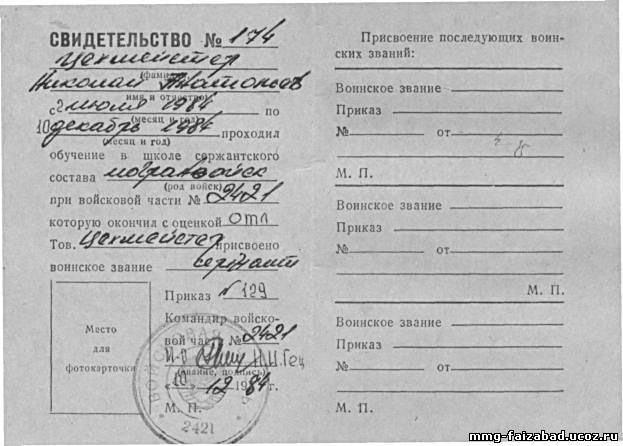 СВИДЕТЕЛЬСТВО № 174
Цехмейстер
(фамилия)
Николай Анатольев
имя и отчество)
с 2 июля 1984 по
(месяц и год)
10 декабрь 1984 проходил
(месяц и год)
обучение в школе сержантского
состава погранвойск
(род войск)
при войсковой части № 2421
которую окончил с оценкой отл
Тов. Цехмейстер присвоено
воинское звание сержант
Место
для
фотокарточки
Приказ № 129
Командир войско-
вой части № 2421
(звание, подпись)
« 10 » 12 1984 г.
М. П.
2421
Присвоение последующих воин-
ских званий:
Воинское звание
Приказ
№ от
М. П.
Воинское звание
Приказ
№ от
М. П.
Воинское звание
Приказ
№ от
М. П.
mmg-faizabad.ucoz.ru